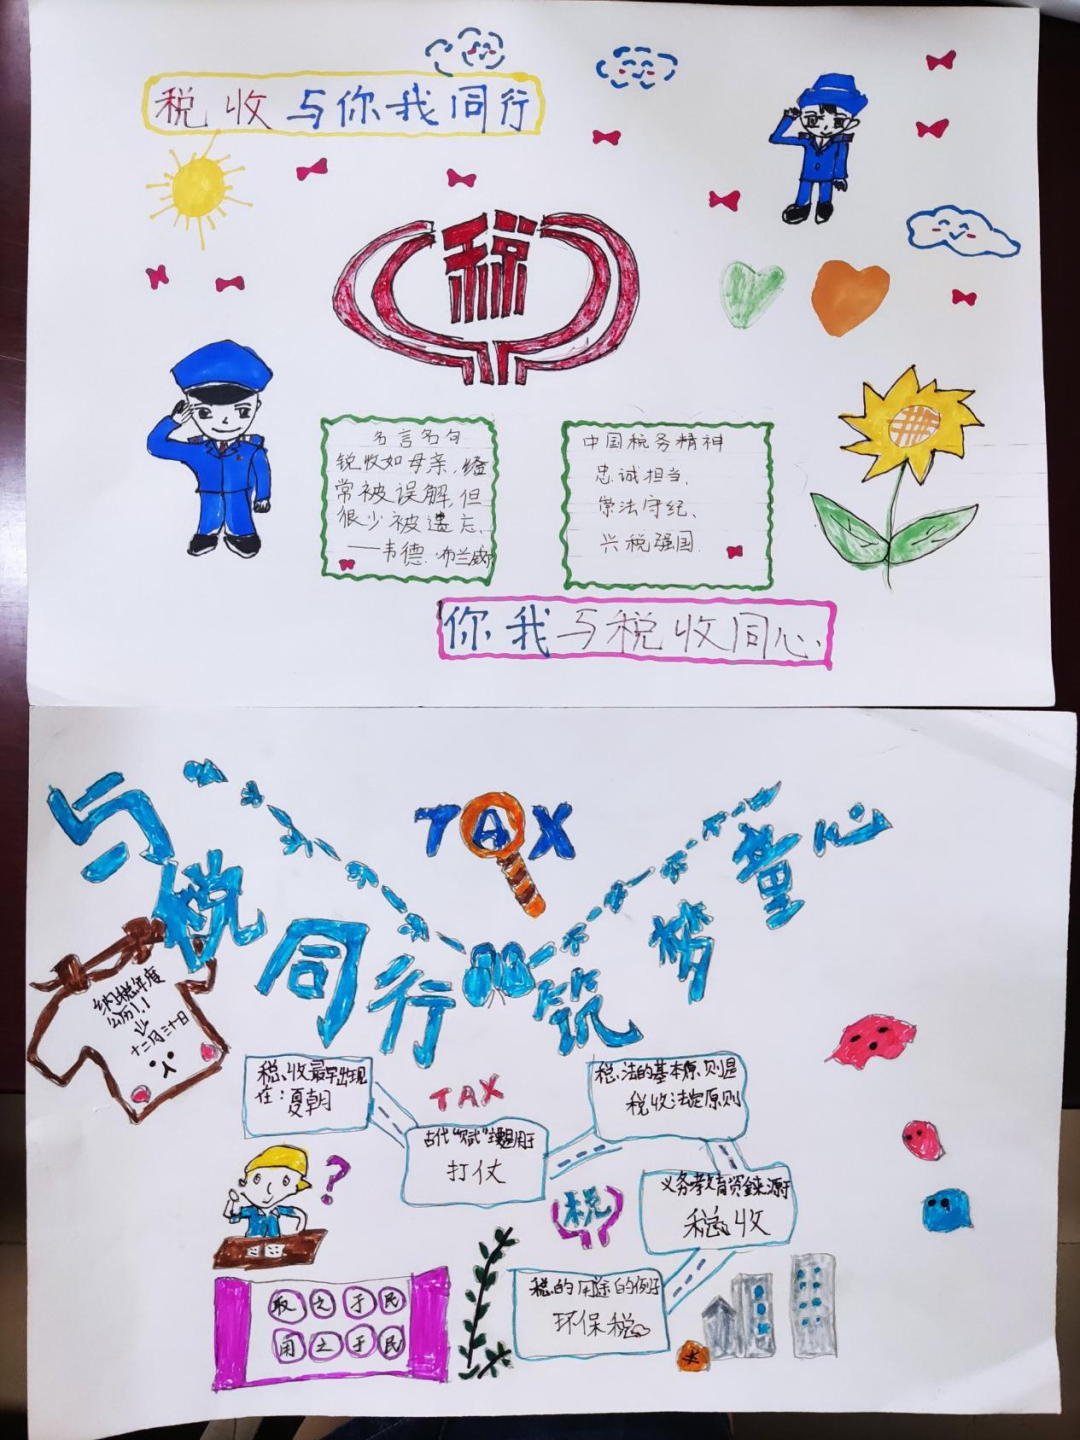 税收与你我同行
税
名言名句
税收如母亲,经
常被误解,但
很少被遗忘、
——韦德·布兰威
中国税务精神
忠诚担当、
崇法守纪、
兴税强国.
你我与税收同心、
TAX
与税同行 筑梦童心
纳税年度
公历1.1
十二月三十日
税收最早出现
在:夏朝
TAX
古代“赋”主要用于
打仗
税法的基本原则是
税收法定原则
义务教育资金来源于
税收
税
?
税的用途的例子
环保税
取之于民
用之于民